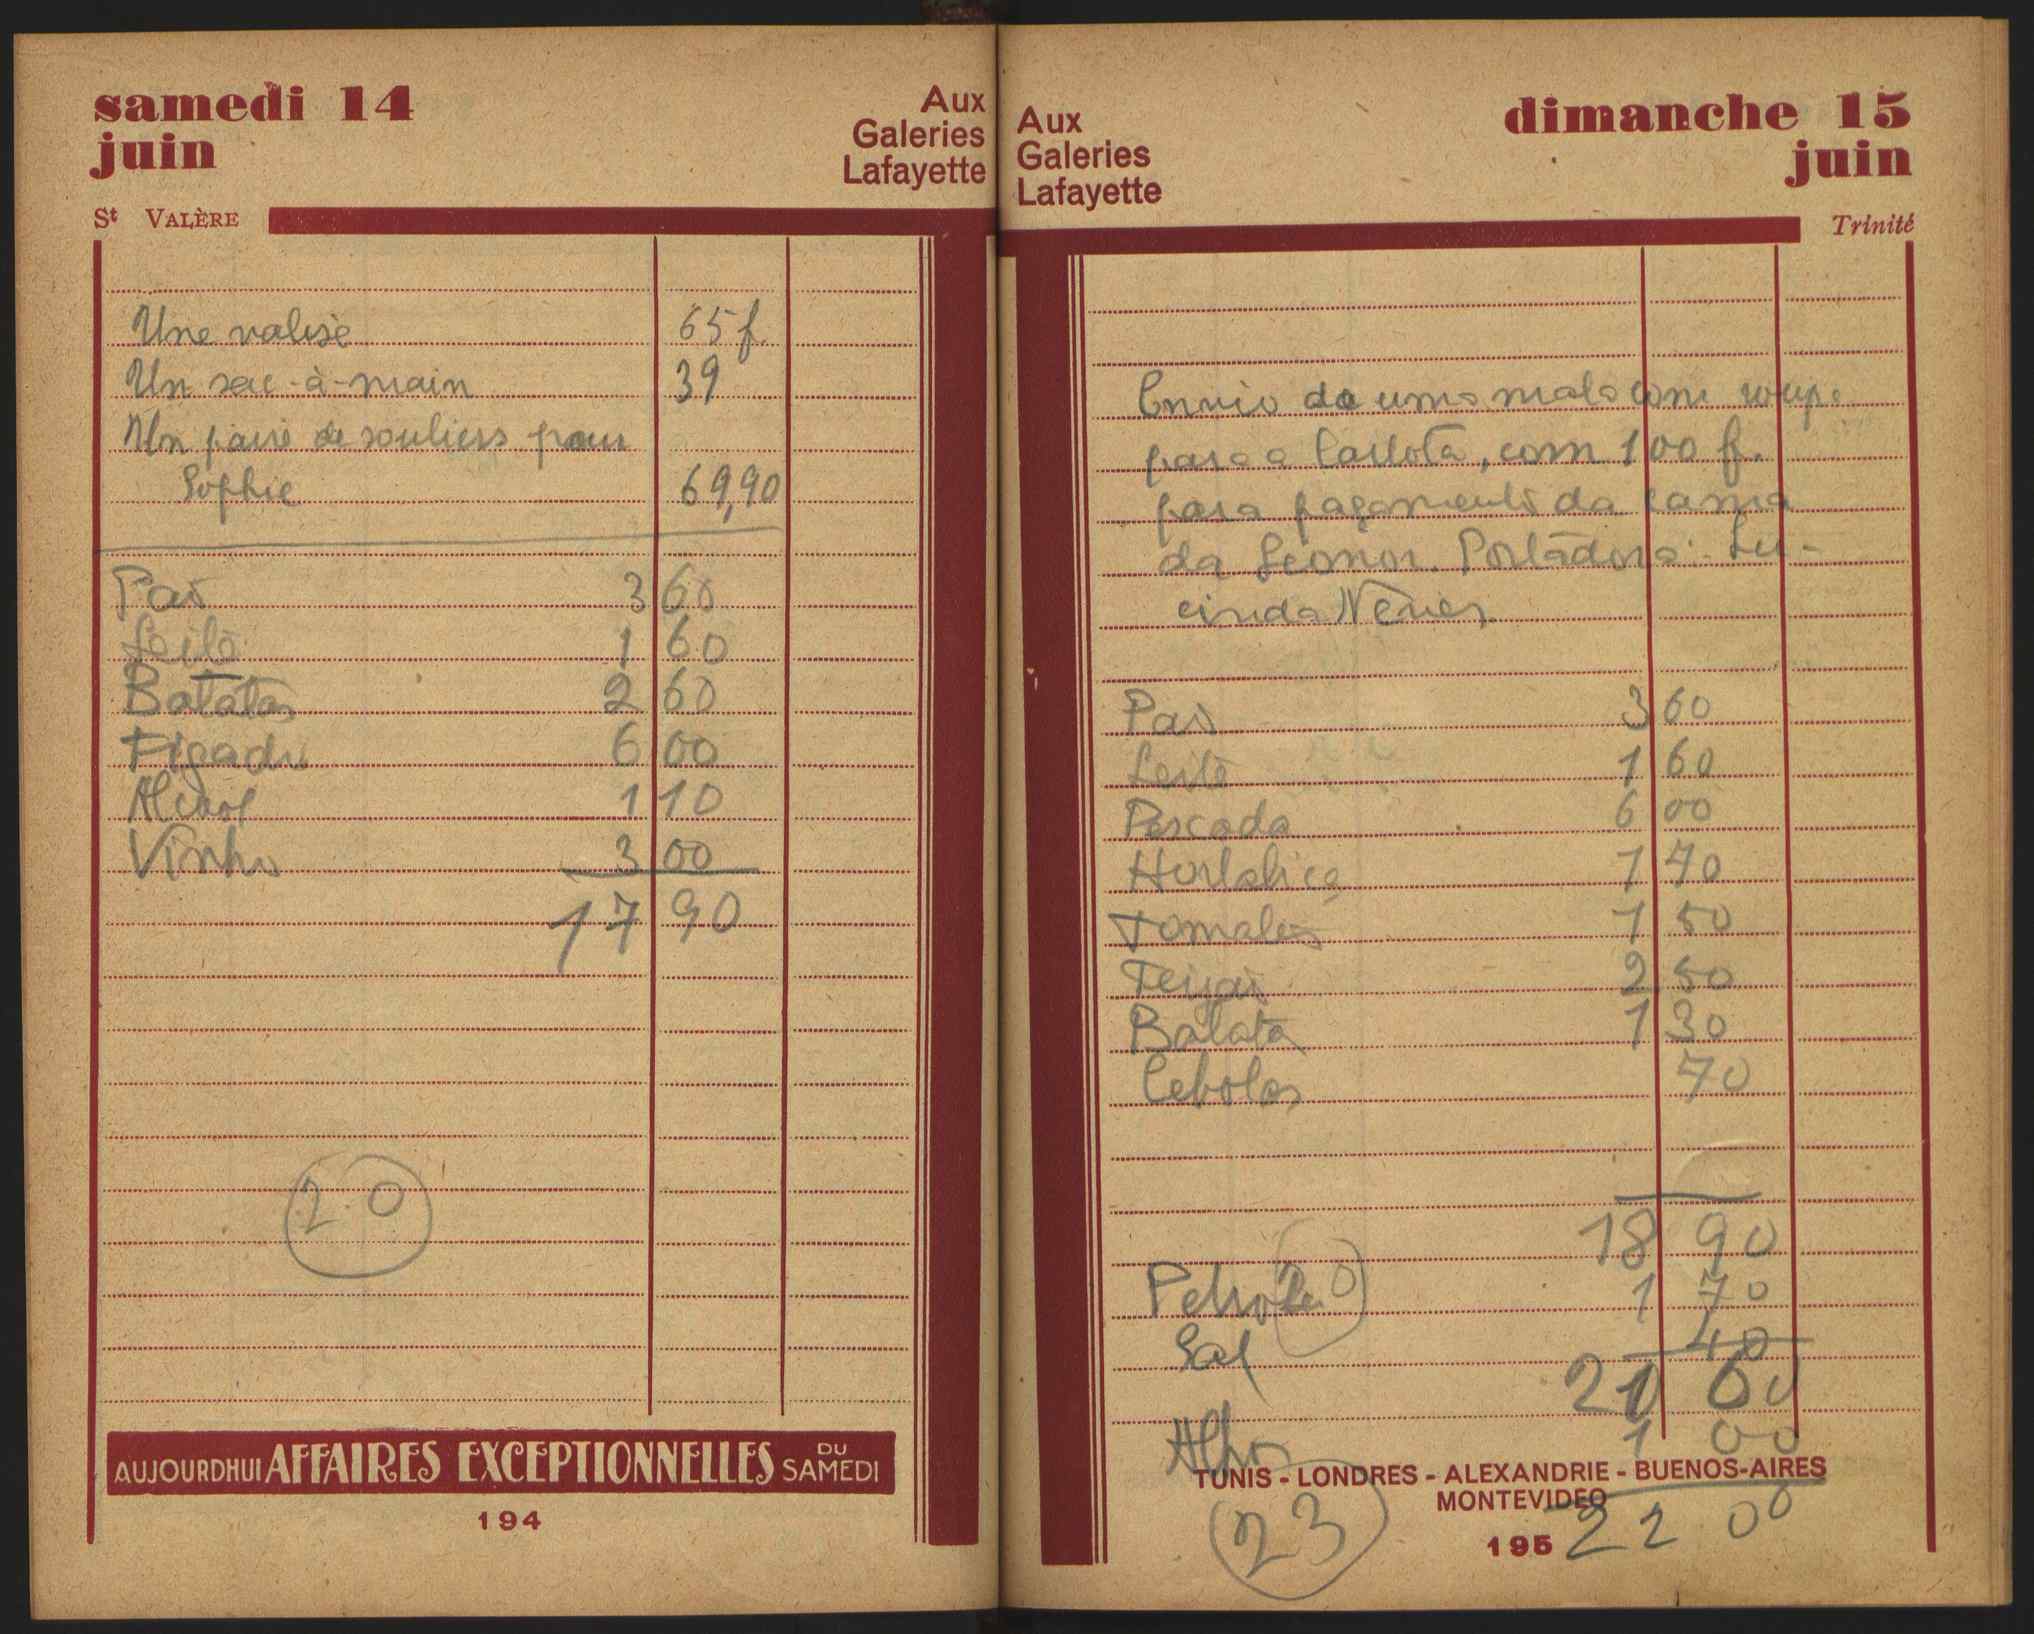 samedi 14
juin
Aux
Galeries
Lafayette
St VALÈRE
Une valise 65 f.
Un sac-à-main 39
Un paire de souliers pour
Sophie 69,90
Pao 3 60
Leite 1 60
Batatas 2 60
Figado 6 00
Alcool 1 10
Vinho 3 00
17 90
20
AUJOURDHUI AFFAIRES EXCEPTIONNELLES DU SAMEDI
194
Aux
Galeries
Lafayette
dimanche 15
juin
Trinité
Envio de uma mala com roupa
para a Carlota, com 100 f.
para pagamento da cama
da Leonor. Portadora: Lu-
cinda Neves
Pao 3 60
Leite 1 60
Pescada 6 00
Hortaliça 1 70
Tomates 1 50
Feijao 2 50
Batata 1 30
Cebolas 70
18 90
Petroleo 1 70
20
Sal 40
21 60
Alhos 1 00
TUNIS - LONDRES - ALEXANDRIE - BUENOS-AIRES
MONTEVIDEO
22 00
23
195